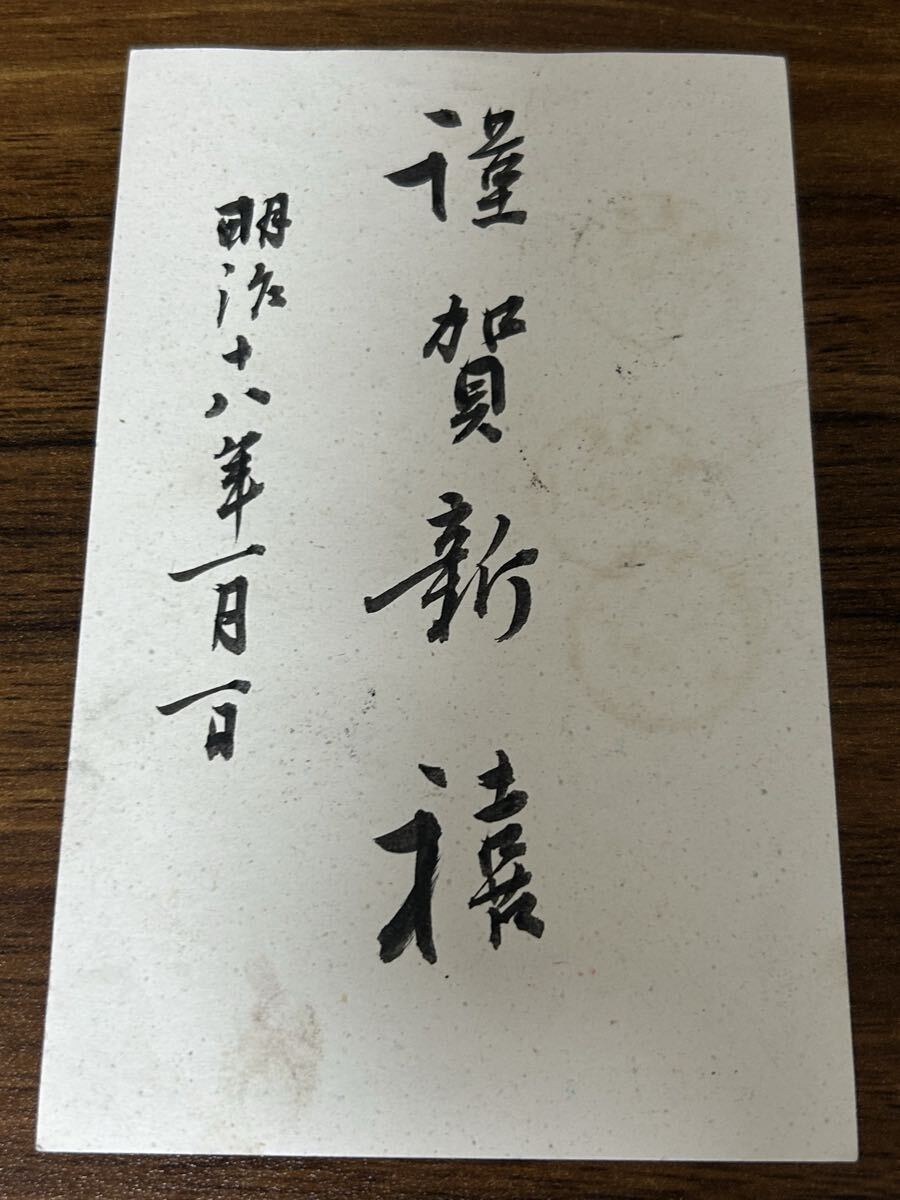 謹賀新禧
明治十八年一月一日